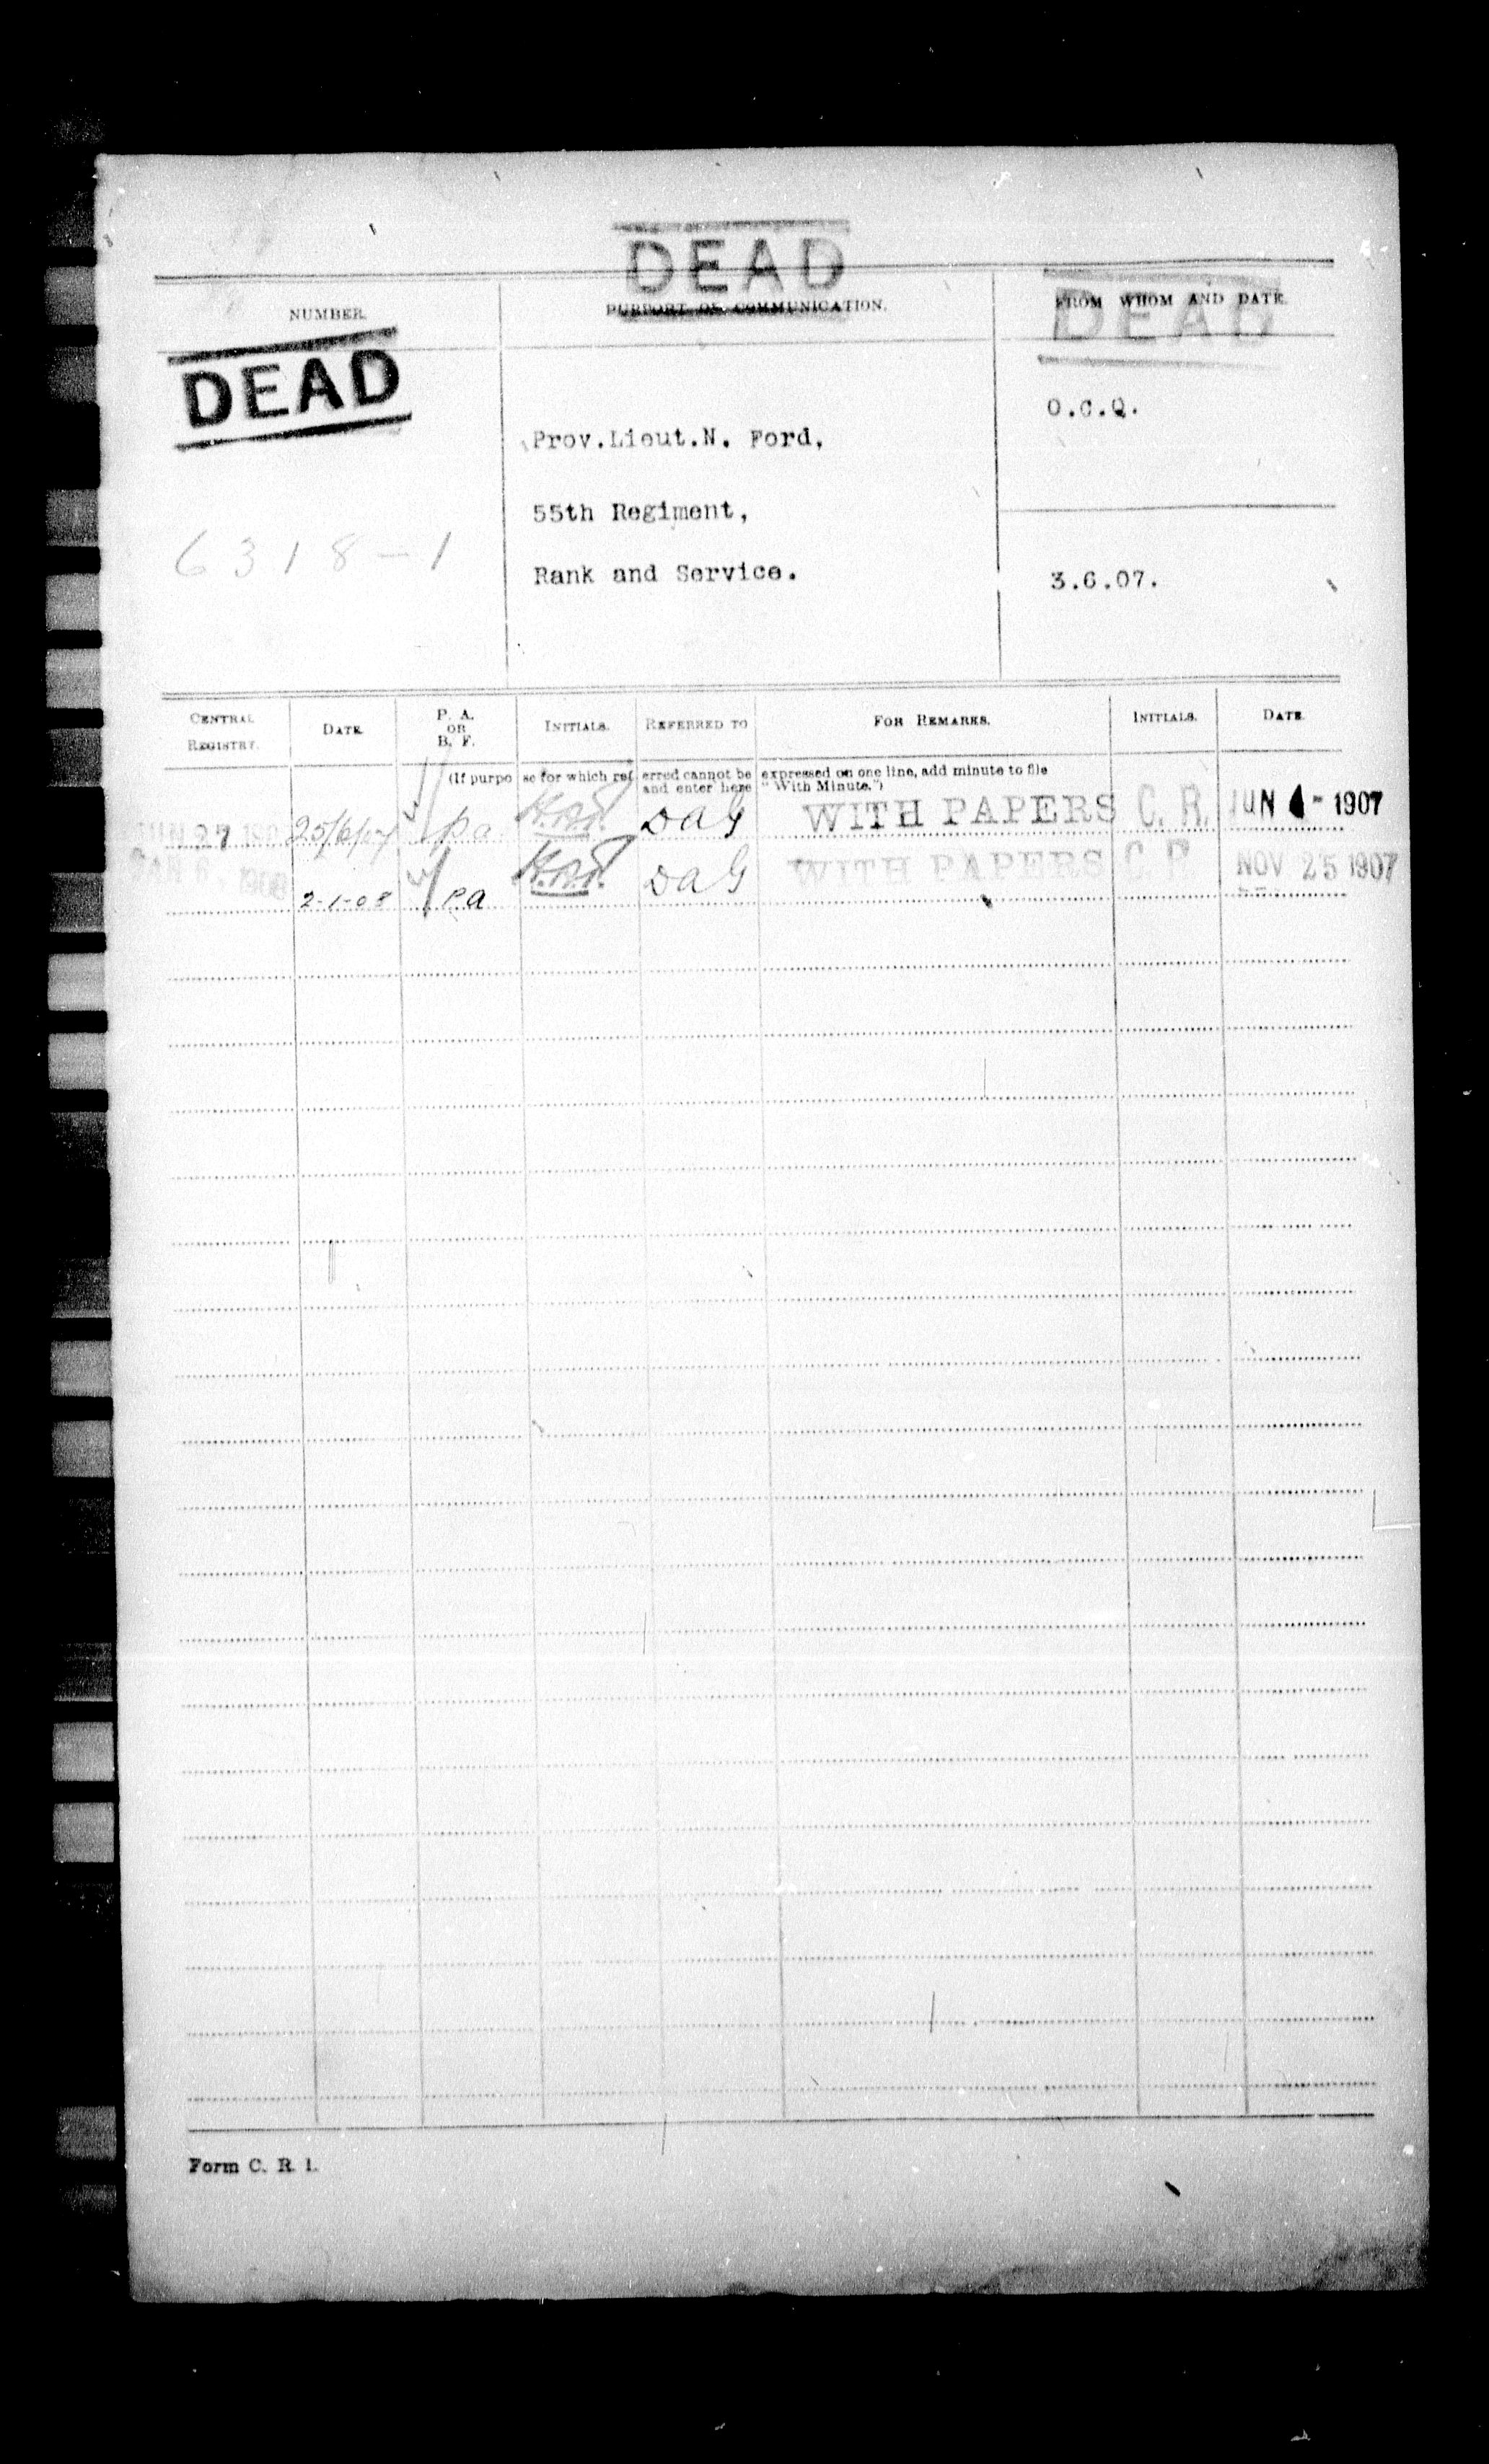 DEAD
NUMBER.
PURPORT OF COMMUNICATION.
FROM WHOM AND DATE.
DEAD
DEAD
O.C.Q.
Prov.Lieut.N. Ford,
55th Regiment,
6318-1
Rank and Service.
3.6.07.
CENTRAL REGISTRY. DATE. P. A. OR B. F. INITIALS. REFERRED TO FOR REMARKS. INITIALS. DATE.
(If purpose for which referred cannot be expressed on one line, add minute to file
and enter here "With Minute.")
JUN 27 25/6/07 pa DAG WITH PAPERS C. R. JUN 4 - 1907
JAN 6 1908 2-1-08 pa DAG WITH PAPERS C. R. NOV 25 1907
Form C. R. 1.